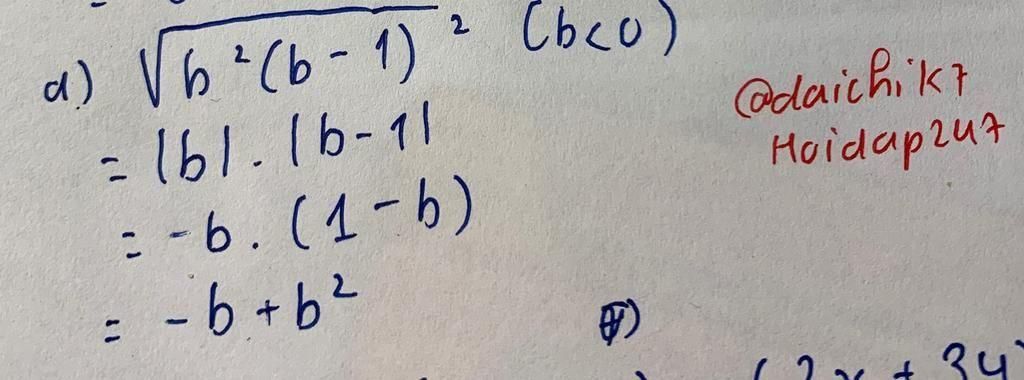 a) √b²(b - 1)² (b<0)
= |b| . |b - 1|
= -b . (1 - b)
= -b + b²
@daichik7
Hoidap247
(2x + 34)